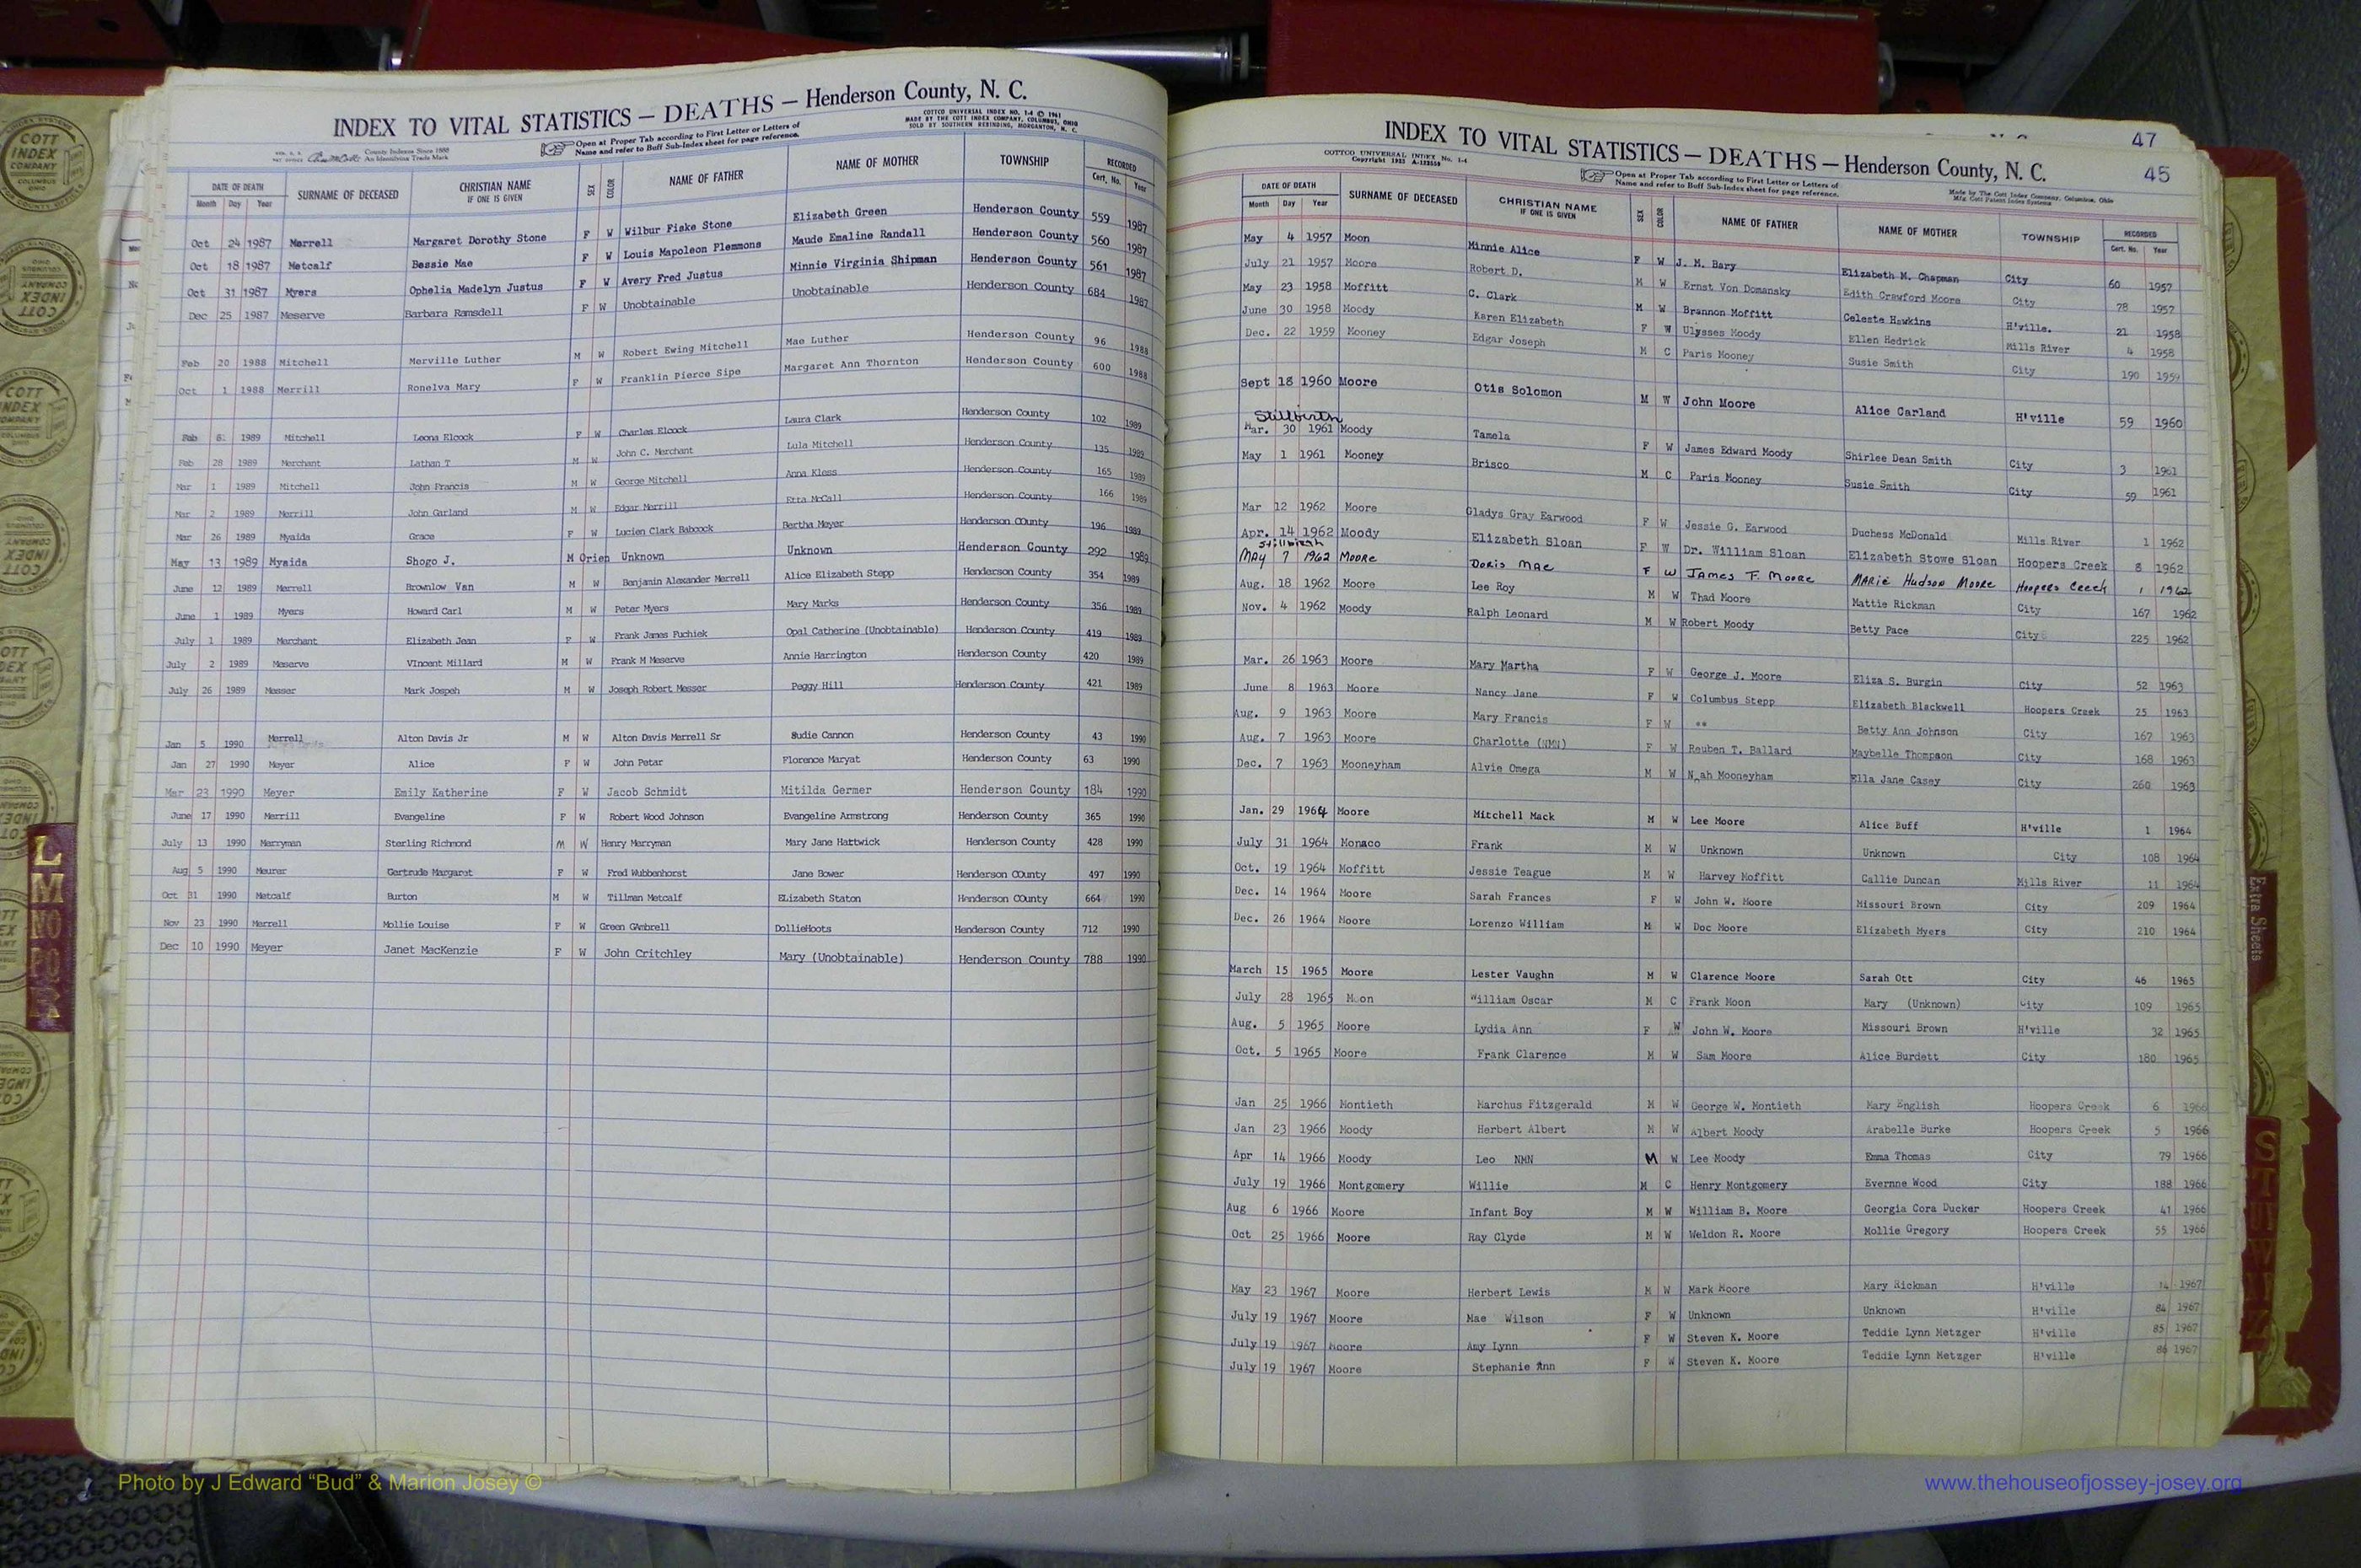 INDEX TO VITAL STATISTICS — DEATHS — Henderson County, N. C.
COTTCO UNIVERSAL INDEX NO. 1-4 © 1961
MADE BY THE COTT INDEX COMPANY, COLUMBUS, OHIO
SOLD BY SOUTHERN REBINDING, MORGANTON, N. C.
County Indexes Since 1888
An Identifying Trade Mark
Open at Proper Tab according to First Letter or Letters of
Name and refer to Buff Sub-Index sheet for page reference.
DATE OF DEATH SURNAME OF DECEASED CHRISTIAN NAME IF ONE IS GIVEN SEX COLOR NAME OF FATHER NAME OF MOTHER TOWNSHIP RECORDED
Month Day Year Cert. No. Year
Oct 24 1987 Merrell Margaret Dorothy Stone F W Wilbur Fiske Stone Elizabeth Green Henderson County 559 1987
Oct 18 1987 Metcalf Bessie Mae F W Louis Mapoleon Plemmons Maude Emaline Randall Henderson County 560 1987
Oct 31 1987 Myers Ophelia Madelyn Justus F W Avery Fred Justus Minnie Virginia Shipman Henderson County 561 1987
Dec 25 1987 Meserve Barbara Ramsdell F W Unobtainable Unobtainable Henderson County 684 1987
Feb 20 1988 Mitchell Merville Luther M W Robert Ewing Mitchell Mae Luther Henderson County 96 1988
Oct 1 1988 Merrill Ronelva Mary F W Franklin Pierce Sipe Margaret Ann Thornton Henderson County 600 1988
Feb 8 1989 Mitchell Leona Elcock F W Charles Elcock Laura Clark Henderson County 102 1989
Feb 28 1989 Merchant Lathan T M W John C. Merchant Lula Mitchell Henderson County 135 1989
Mar 1 1989 Mitchell John Francis M W George Mitchell Anna Kless Henderson County 165 1989
Mar 2 1989 Merrill John Garland M W Edgar Merrill Etta McCall Henderson County 166 1989
Mar 26 1989 Myaida Grace F W Lucien Clark Babcock Bertha Meyer Henderson COunty 196 1989
May 13 1989 Myaida Shogo J. M Orien Unknown Unknown Henderson County 292 1989
June 12 1989 Merrell Brownlow Van M W Benjamin Alexander Merrell Alice Elizabeth Stepp Henderson County 354 1989
June 1 1989 Myers Howard Carl M W Peter Myers Mary Marks Henderson County 356 1989
July 1 1989 Merchant Elizabeth Jean F W Frank James Fuchiek Opal Catherine (Unobtainable) Henderson County 419 1989
July 2 1989 Meserve VIncent Millard M W Frank M Meserve Annie Harrington Henderson County 420 1989
July 26 1989 Messer Mark Jospeh M W Joseph Robert Messer Peggy Hill Henderson County 421 1989
Jan 5 1990 Merrell Alton Davis Jr M W Alton Davis Merrell Sr Sudie Cannon Henderson County 43 1990
Jan 27 1990 Meyer Alice F W John Petar Florence Maryat Henderson County 63 1990
Mar 23 1990 Meyer Emily Katherine F W Jacob Schmidt Mitilda Germer Henderson County 184 1990
June 17 1990 Merrill Evangeline F W Robert Wood Johnson Evangeline Armstrong Henderson County 365 1990
July 13 1990 Merryman Sterling Richmond M W Henry Merryman Mary Jane Hartwick Henderson County 428 1990
Aug 5 1990 Meurer Gertrude Margaret F W Fred Wubbenhorst Jane Bower Henderson COunty 497 1990
Oct 31 1990 Metcalf Burton M W Tillman Metcalf ELizabeth Staton Henderson COunty 664 1990
Nov 23 1990 Merrell Mollie Louise F W Green GAmbrell DollieHoots Henderson County 712 1990
Dec 10 1990 Meyer Janet MacKenzie F W John Critchley Mary (Unobtainable) Henderson County 788 1990
47
45
INDEX TO VITAL STATISTICS — DEATHS — Henderson County, N. C.
COTTCO UNIVERSAL INDEX No. 1-4
Open at Proper Tab according to First Letter or Letters of
Name and refer to Buff Sub-Index sheet for page reference.
Made by The Cott Index Company, Columbus, Ohio
DATE OF DEATH SURNAME OF DECEASED CHRISTIAN NAME IF ONE IS GIVEN SEX COLOR NAME OF FATHER NAME OF MOTHER TOWNSHIP RECORDED
Month Day Year Cert. No. Year
May 4 1957 Moon Minnie Alice F W J. M. Bary Elizabeth M. Chapman City 60 1957
July 21 1957 Moore Robert D. M W Ernst Von Domansky Edith Crawford Moore City 78 1957
May 23 1958 Moffitt C. Clark M W Brannon Moffitt Celeste Hawkins H'ville. 21 1958
June 30 1958 Moody Karen Elizabeth F W Ulysses Moody Ellen Hedrick Mills River 4 1958
Dec. 22 1959 Mooney Edgar Joseph M C Paris Mooney Susie Smith City 190 1959
Sept 18 1960 Moore Otis Solomon M W John Moore Alice Carland H'ville 59 1960
Stillbirth
Mar. 30 1961 Moody Tamela F W James Edward Moody Shirlee Dean Smith City 3 1961
May 1 1961 Mooney Brisco M C Paris Mooney Susie Smith City 59 1961
Mar 12 1962 Moore Gladys Gray Earwood F W Jessie G. Earwood Duchess McDonald Mills River 1 1962
Apr. 14 1962 Moody Elizabeth Sloan F W Dr. William Sloan Elizabeth Stowe Sloan Hoopers Creek 8 1962
Stillbirth
MAY 7 1962 MOORE DORIS MAE F W JAMES F. MOORE MARIE HUDSON MOORE Hoopers Creek 1 1962
Aug. 18 1962 Moore Lee Roy M W Thad Moore Mattie Rickman City 167 1962
Nov. 4 1962 Moody Ralph Leonard M W Robert Moody Betty Pace City 225 1962
Mar. 26 1963 Moore Mary Martha F W George J. Moore Eliza S. Burgin City 52 1963
June 8 1963 Moore Nancy Jane F W Columbus Stepp Elizabeth Blackwell Hoopers Creek 25 1963
Aug. 9 1963 Moore Mary Francis F W ** Betty Ann Johnson City 167 1963
Aug. 7 1963 Moore Charlotte (NMN) F W Reuben T. Ballard Maybelle Thompson City 168 1963
Dec. 7 1963 Mooneyham Alvie Omega M W Noah Mooneyham Ella Jane Casey City 260 1963
Jan. 29 1964 Moore Mitchell Mack M W Lee Moore Alice Buff H'ville 1 1964
July 31 1964 Monaco Frank M W Unknown Unknown City 108 1964
Oct. 19 1964 Moffitt Jessie Teague M W Harvey Moffitt Callie Duncan Mills River 11 1964
Dec. 14 1964 Moore Sarah Frances F W John W. Moore Missouri Brown City 209 1964
Dec. 26 1964 Moore Lorenzo William M W Doc Moore Elizabeth Myers City 210 1964
March 15 1965 Moore Lester Vaughn M W Clarence Moore Sarah Ott City 46 1965
July 28 1965 Moon William Oscar M C Frank Moon Mary (Unknown) City 109 1965
Aug. 5 1965 Moore Lydia Ann F W John W. Moore Missouri Brown H'ville 32 1965
Oct. 5 1965 Moore Frank Clarence M W Sam Moore Alice Burdett City 180 1965
Jan 25 1966 Montieth Marchus Fitzgerald M W George W. Montieth Mary English Hoopers Creek 6 1966
Jan 23 1966 Moody Herbert Albert M W Albert Moody Arabelle Burke Hoopers Creek 5 1966
Apr 14 1966 Moody Leo NMN M W Lee Moody Emma Thomas City 79 1966
July 19 1966 Montgomery Willie M C Henry Montgomery Evernne Wood City 188 1966
Aug 6 1966 Moore Infant Boy M W William B. Moore Georgia Cora Ducker Hoopers Creek 41 1966
Oct 25 1966 Moore Ray Clyde M W Weldon R. Moore Mollie Gregory Hoopers Creek 55 1966
May 23 1967 Moore Herbert Lewis M W Mark Moore Mary Rickman H'ville 14 1967
July 19 1967 Moore Mae Wilson F W Unknown Unknown H'ville 84 1967
July 19 1967 Moore Amy Lynn F W Steven K. Moore Teddie Lynn Metzger H'ville 85 1967
July 19 1967 Moore Stephanie Ann F W Steven K. Moore Teddie Lynn Metzger H'ville 86 1967
COTT INDEX COMPANY
L
M
NO
PQ
R
Extra Sheets
S
T
Photo by J Edward “Bud” & Marion Josey ©
www.thehouseofjossey-josey.org